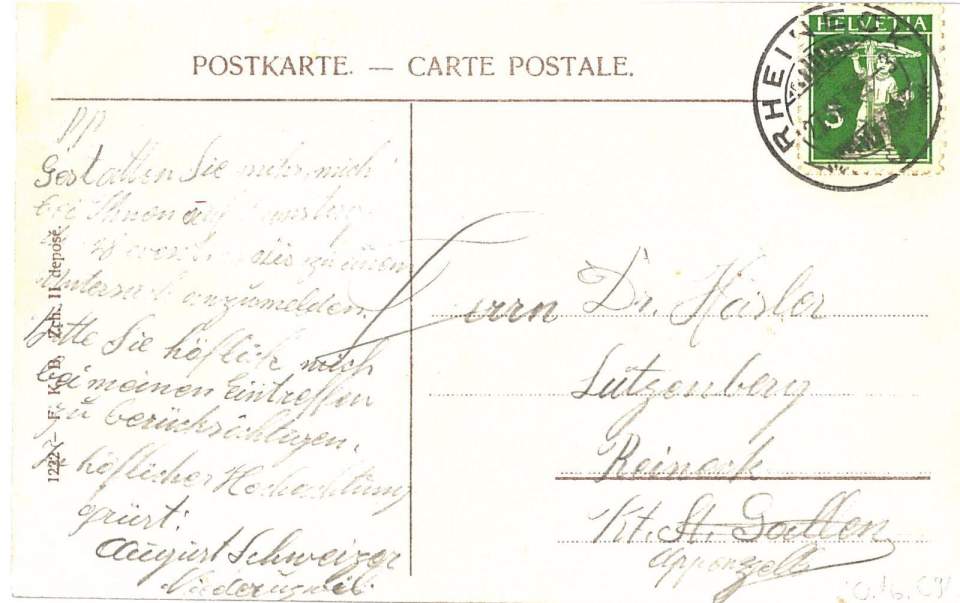 POSTKARTE. — CARTE POSTALE.
HELVETIA
RHEINECK
5
PP
Gestatten Sie mihr, mich
bei Ihnen auf
zu einem
anzumelden
Bitte Sie höflich mich
bei meinen Eintreffen
zu berücksichtigen.
höflicher Hochachtung
grüst:
August Schweizer
Herrn Dr. Häsler
Lutzenberg
Reineck
Kt. St. Gallen
Appenzell
1222 – F. K. B. Zch. II deposé.